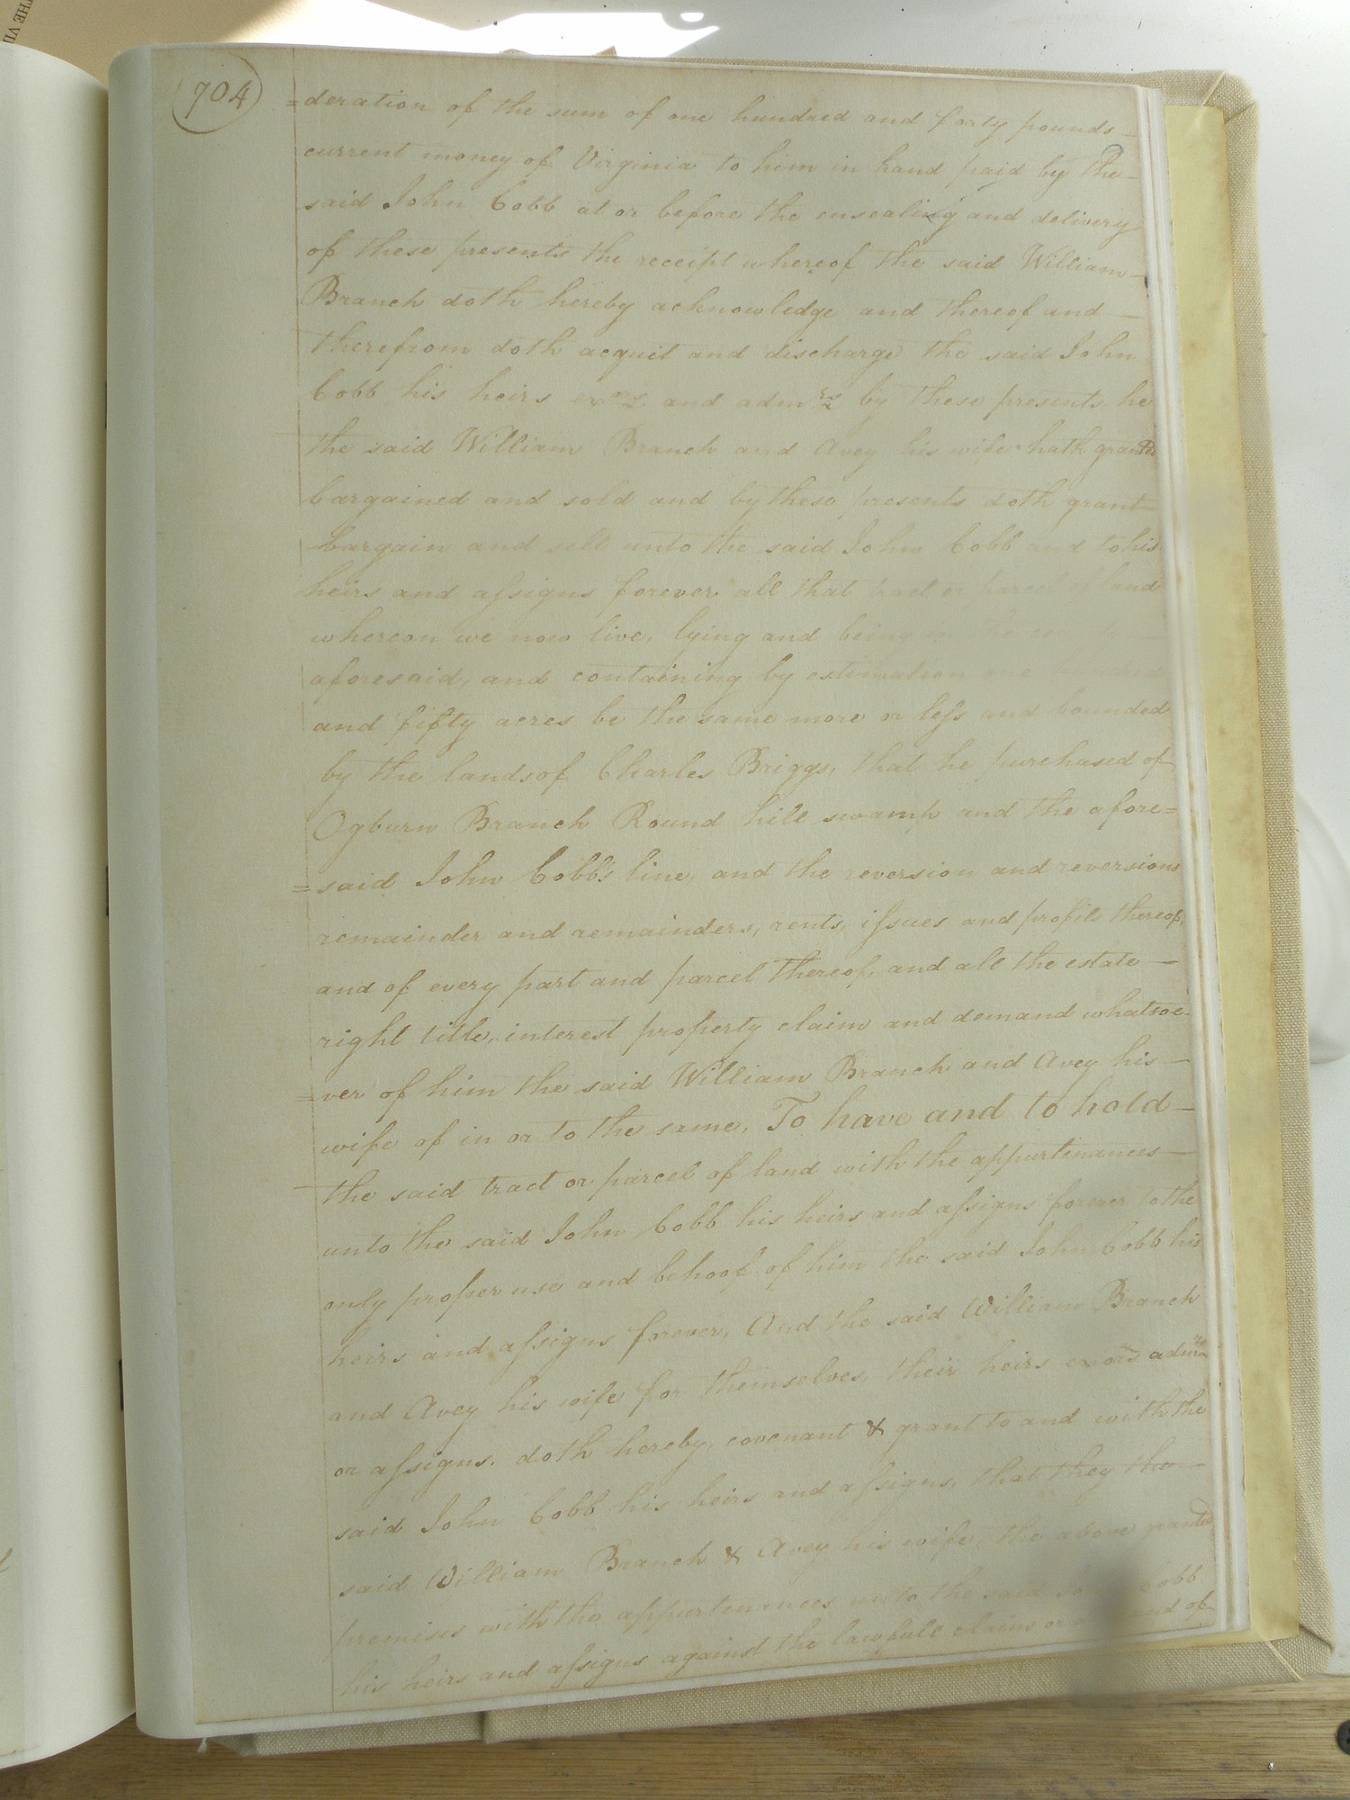 704
=deration of the sum of one hundred and forty pounds
current money of Virginia to him in hand paid by the
said John Cobb at or before the ensealing and delivery
of these presents the receipt whereof the said William
Branch doth hereby acknowledge and thereof and
therefrom doth acquit and discharge the said John
Cobb his heirs exors and admrs by these presents he
the said William Branch and Avey his wife hath granted
bargained and sold and by these presents doth grant
bargain and sell unto the said John Cobb and to his
heirs and assigns forever all that tract or parcel of land
whereon we now live, lying and being in the
aforesaid, and containing by estimation one hundred
and fifty acres be the same more or less and bounded
by the lands of Charles Briggs, that he purchased of
Ogburn Branch Round hill swamp and the afore=
=said John Cobb's line, and the reversion and reversions
remainder and remainders, rents, issues and profits thereof,
and of every part and parcel thereof, and all the estate
right title, interest property claim and demand whatsoe=
=ver of him the said William Branch and Avey his
wife of in or to the same. To have and to hold
the said tract or parcel of land with the appurtenances
unto the said John Cobb his heirs and assigns forever to the
only proper use and behoof of him the said John Cobb his
heirs and assigns forever, And the said William Branch
and Avey his wife for themselves, their heirs exors admrs
or assigns. doth hereby, covenant & grant to and with the
said John Cobb his heirs and assigns, that they the
said William Branch & Avey his wife, the above granted
premises with the appurtenances unto the said John Cobb
his heirs and assigns against the lawfull claim or demand of
THE VI